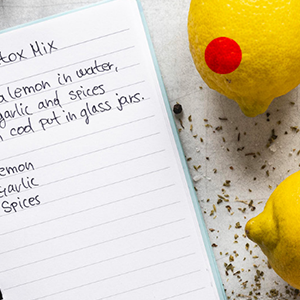 tox Mix
a lemon in water,
garlic and spices
cod put in glass jars.
emon
Garlic
Spices